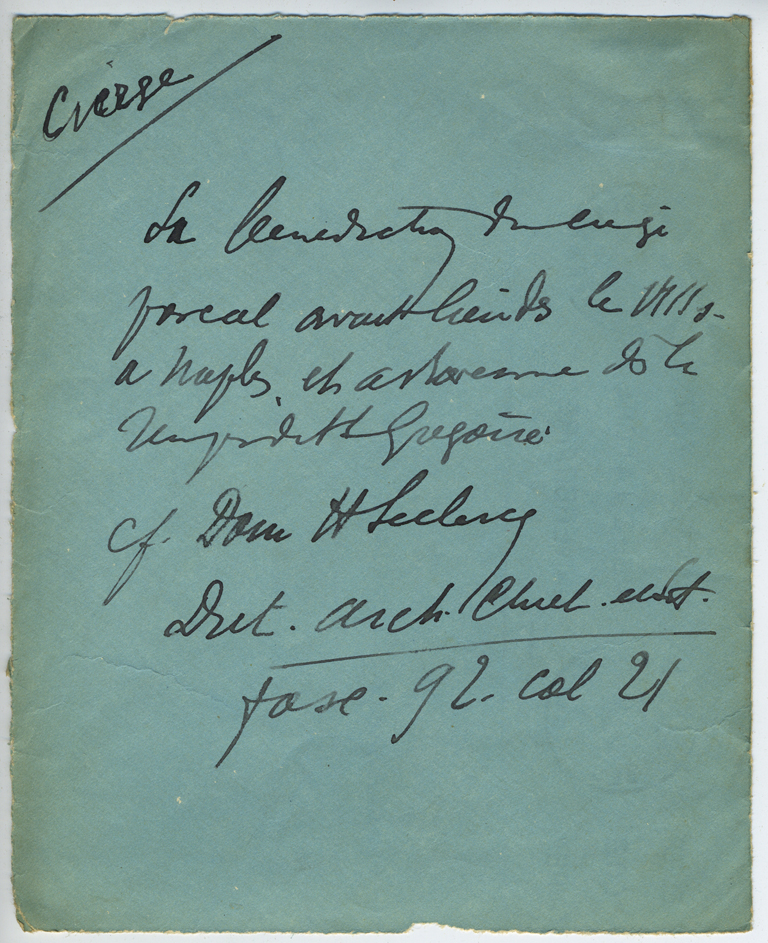 Cierge
La benediction du cierge
pascal avait lieu ds le VIIe s.
a Naples, et a Ravenne ds le
Gregoire
cf. Dom H Leclercq
Dict. Arch. Chret. et Lit.
fasc. 92. col 21